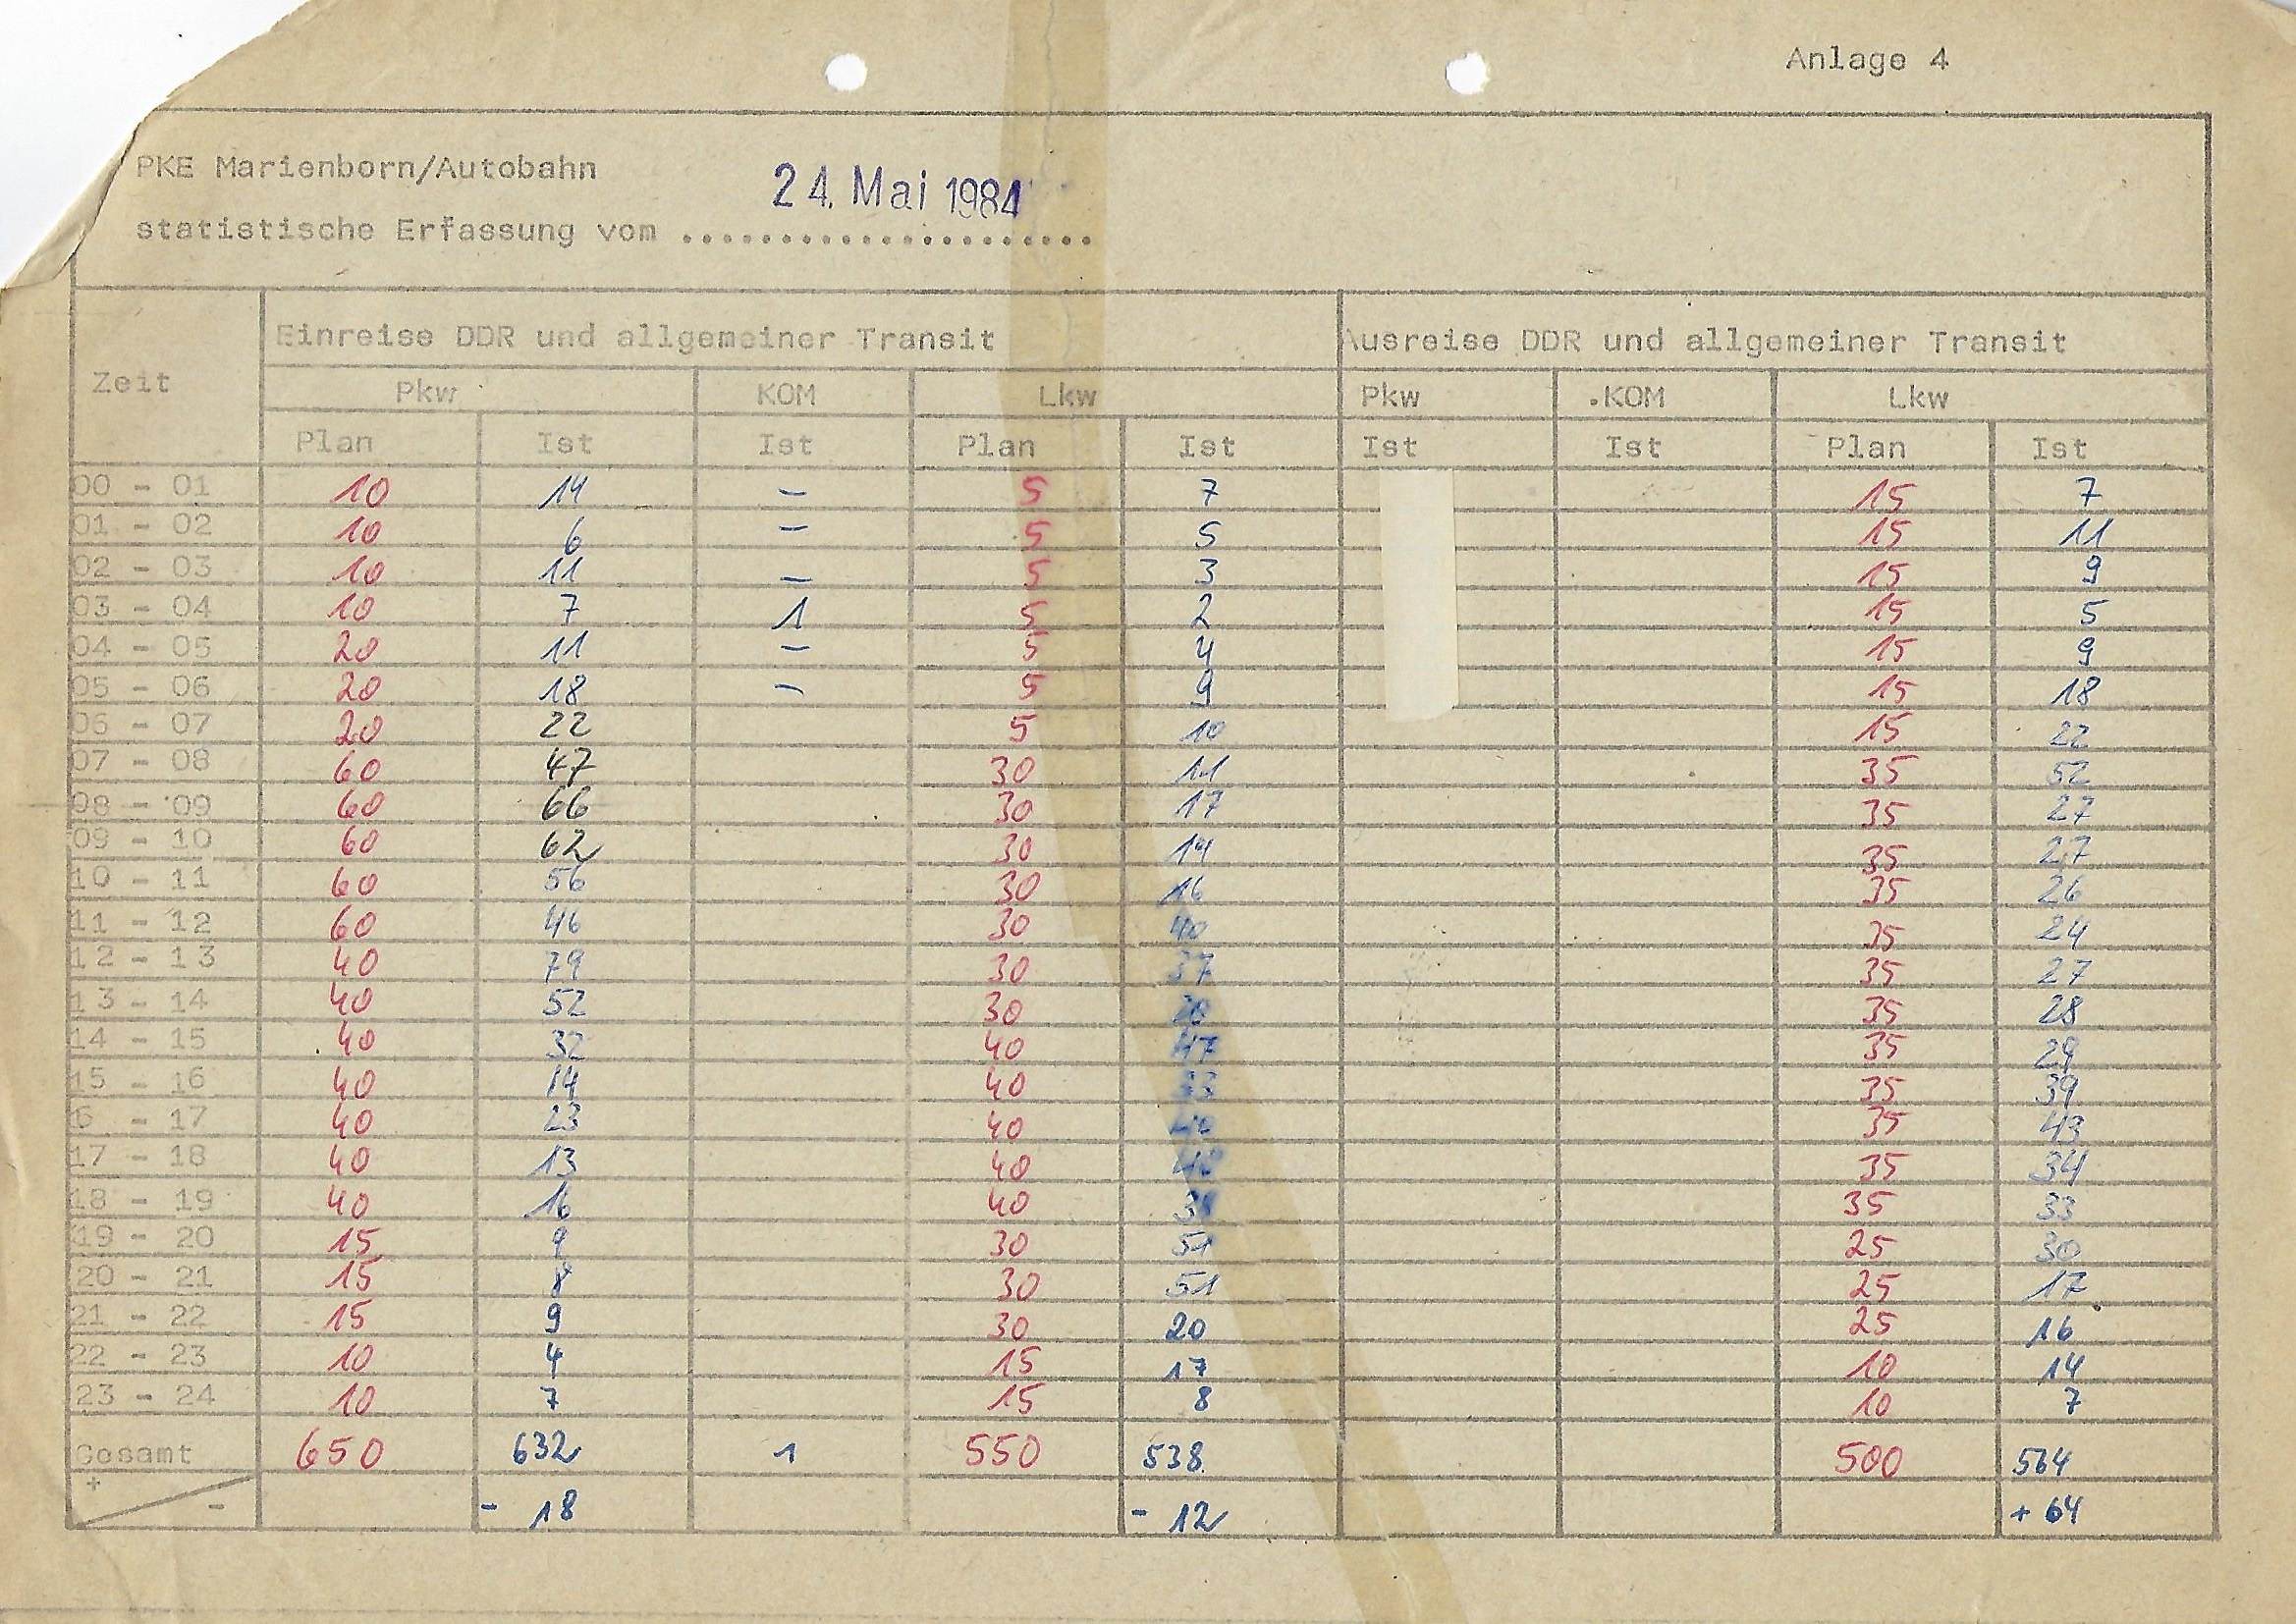 Anlage 4
PKE Marienborn/Autobahn
24. Mai 1984
statistische Erfassung vom .....................
Einreise DDR und allgemeiner Transit Ausreise DDR und allgemeiner Transit
Zeit
Pkw KOM Lkw Pkw KOM Lkw
Plan Ist Ist Plan Ist Ist Ist Plan Ist
00 - 01 10 14 – 5 7 15 7
01 - 02 10 6 – 5 5 15 11
02 - 03 10 11 – 5 3 15 9
03 - 04 10 7 1 5 2 15 5
04 - 05 20 11 – 5 4 15 9
05 - 06 20 18 – 5 9 15 18
06 - 07 20 22 5 10 15 22
07 - 08 60 47 30 11 35 52
08 - 09 60 66 30 17 35 27
09 - 10 60 62 30 14 35 27
10 - 11 60 56 30 16 35 26
11 - 12 60 46 30 40 35 24
12 - 13 40 79 30 37 35 27
13 - 14 40 52 30 35 28
14 - 15 40 32 40 47 35 29
15 - 16 40 14 40 35 39
6 - 17 40 23 40 35 43
17 - 18 40 13 40 35 34
18 - 19 40 16 40 35 33
19 - 20 15 9 30 51 25 30
20 - 21 15 8 30 51 25 17
21 - 22 15 9 30 20 25 16
22 - 23 10 4 15 17 10 14
23 - 24 10 7 15 8 10 7
Gesamt 650 632 1 550 538 500 564
+ - - 18 - 12 + 64